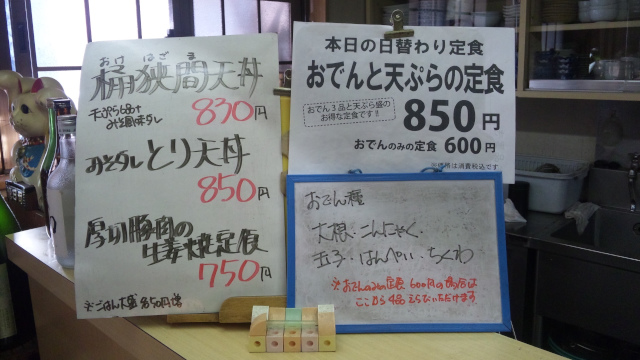 おけ はざ ま
桶狭間天丼
天ぷら6品+
みそ風味タレ
830円
みそダレとり天丼
850円
厚切豚肉の
生姜焼定食
750円
※ごはん大盛
本日の日替わり定食
おでんと天ぷらの定食
おでん3品と天ぷら盛の
お得な定食です!!
850円
おでんのみの定食 600円
※価格は消費税込です
おでん種
大根・こんにゃく・
玉子・はんぺい・ちくわ
※おでんのみの定食 600円の場合は
ここから4品えらびいただけます